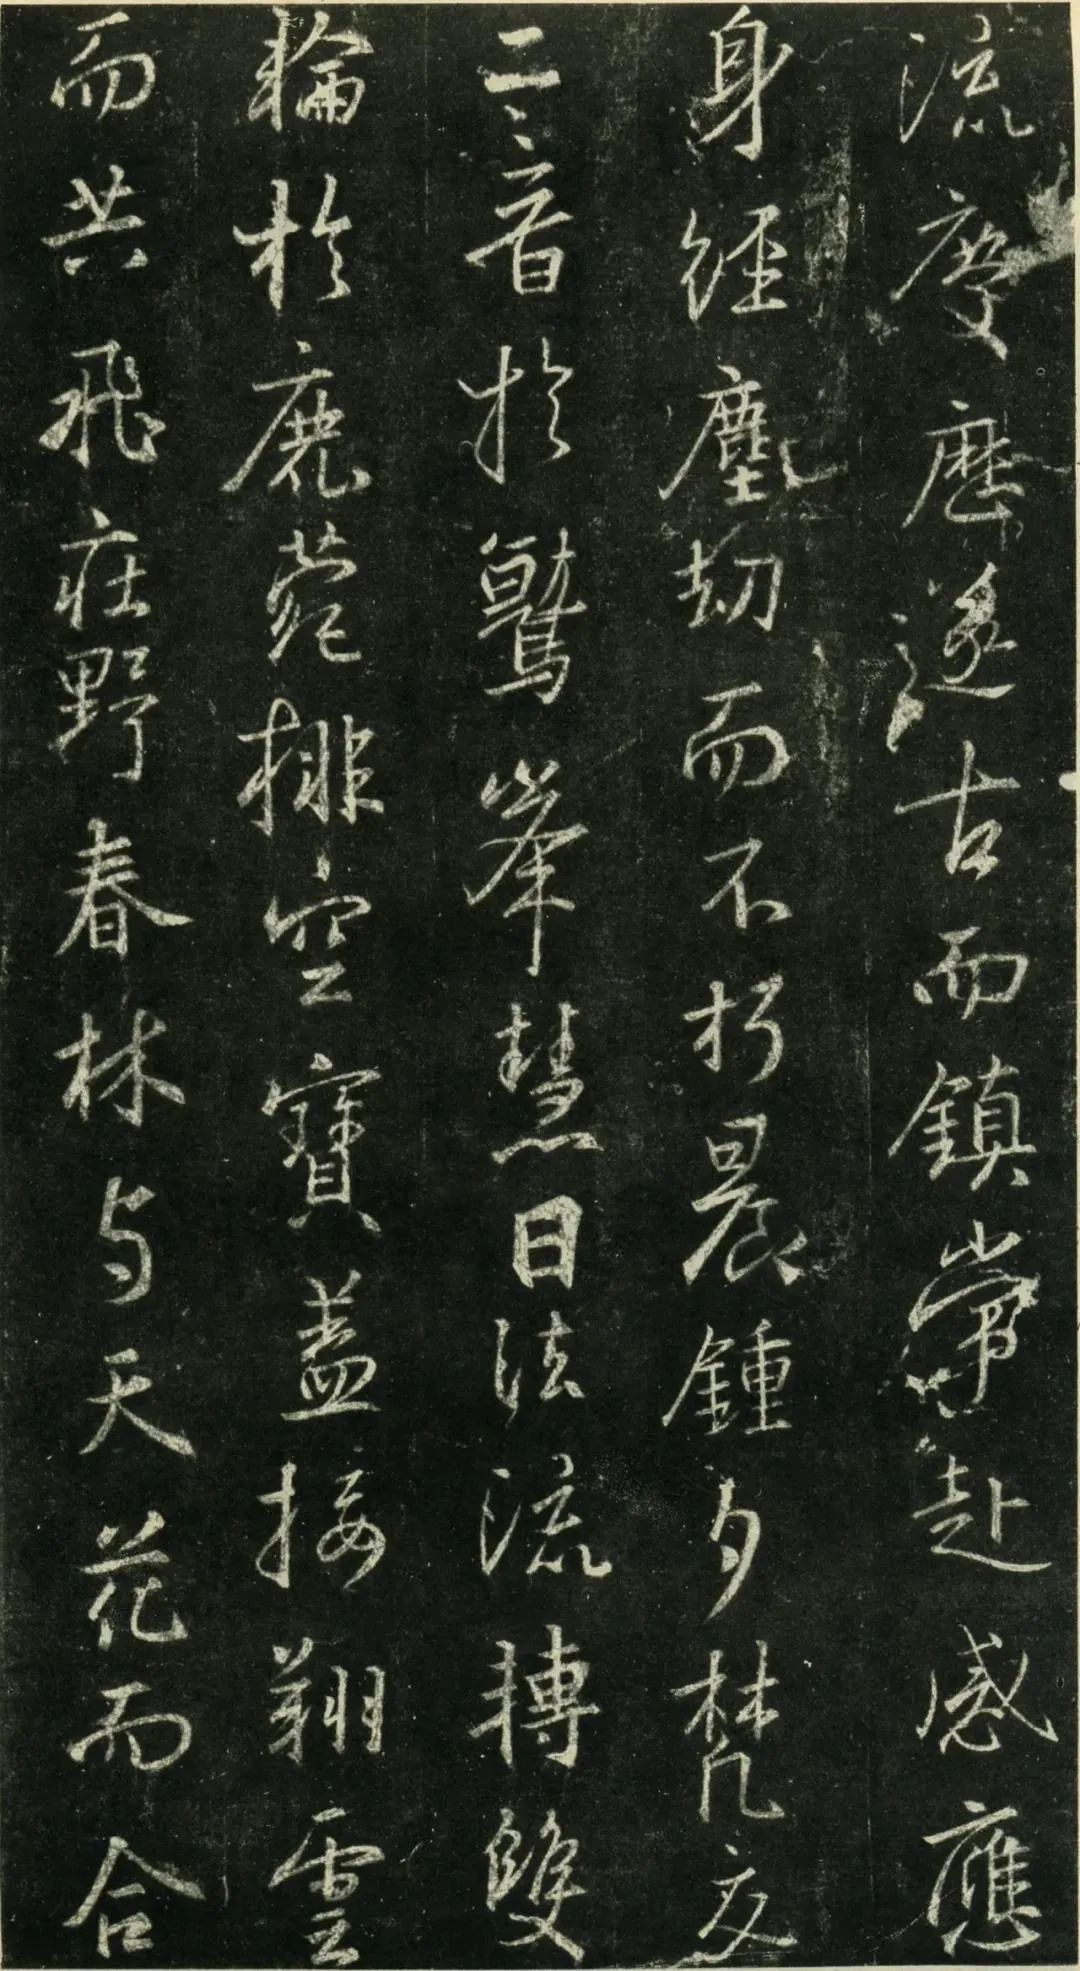 流慶歷遂古而鎮常赴感應
身經塵劫而不朽晨鍾夕梵交
二音於鷲峯慧日法流轉雙
輪於鹿菀排空寶盖接翔雲
而共飛庄野春林与天花而合